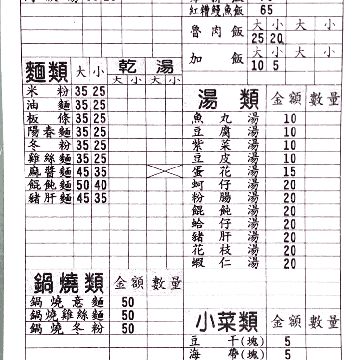 紅糟鰻魚飯 65
大 小 大 小
魯肉飯
25 20
大 小 大 小
加飯
10 5
麵類 大 小 乾 湯
大 小 大 小
米粉 35 25
油麵 35 25
板條 35 25
陽春麵 35 25
冬粉 35 25
雞絲麵 35 25
麻醬麵 45 35
餛飩麵 50 40
豬肝麵 45 35
鍋燒類 金額 數量
鍋燒意麵 50
鍋燒雞絲麵 50
鍋燒冬粉 50
湯類 金額 數量
魚丸湯 10
豆腐湯 10
紫菜湯 10
豆皮湯 10
蛋花湯 15
蚵仔湯 20
粉腸湯 20
餛飩湯 20
蛤仔湯 20
豬肝湯 20
花枝湯 20
蝦仁湯 20
小菜類 金額 數量
豆干(塊) 5
海帶(塊) 5